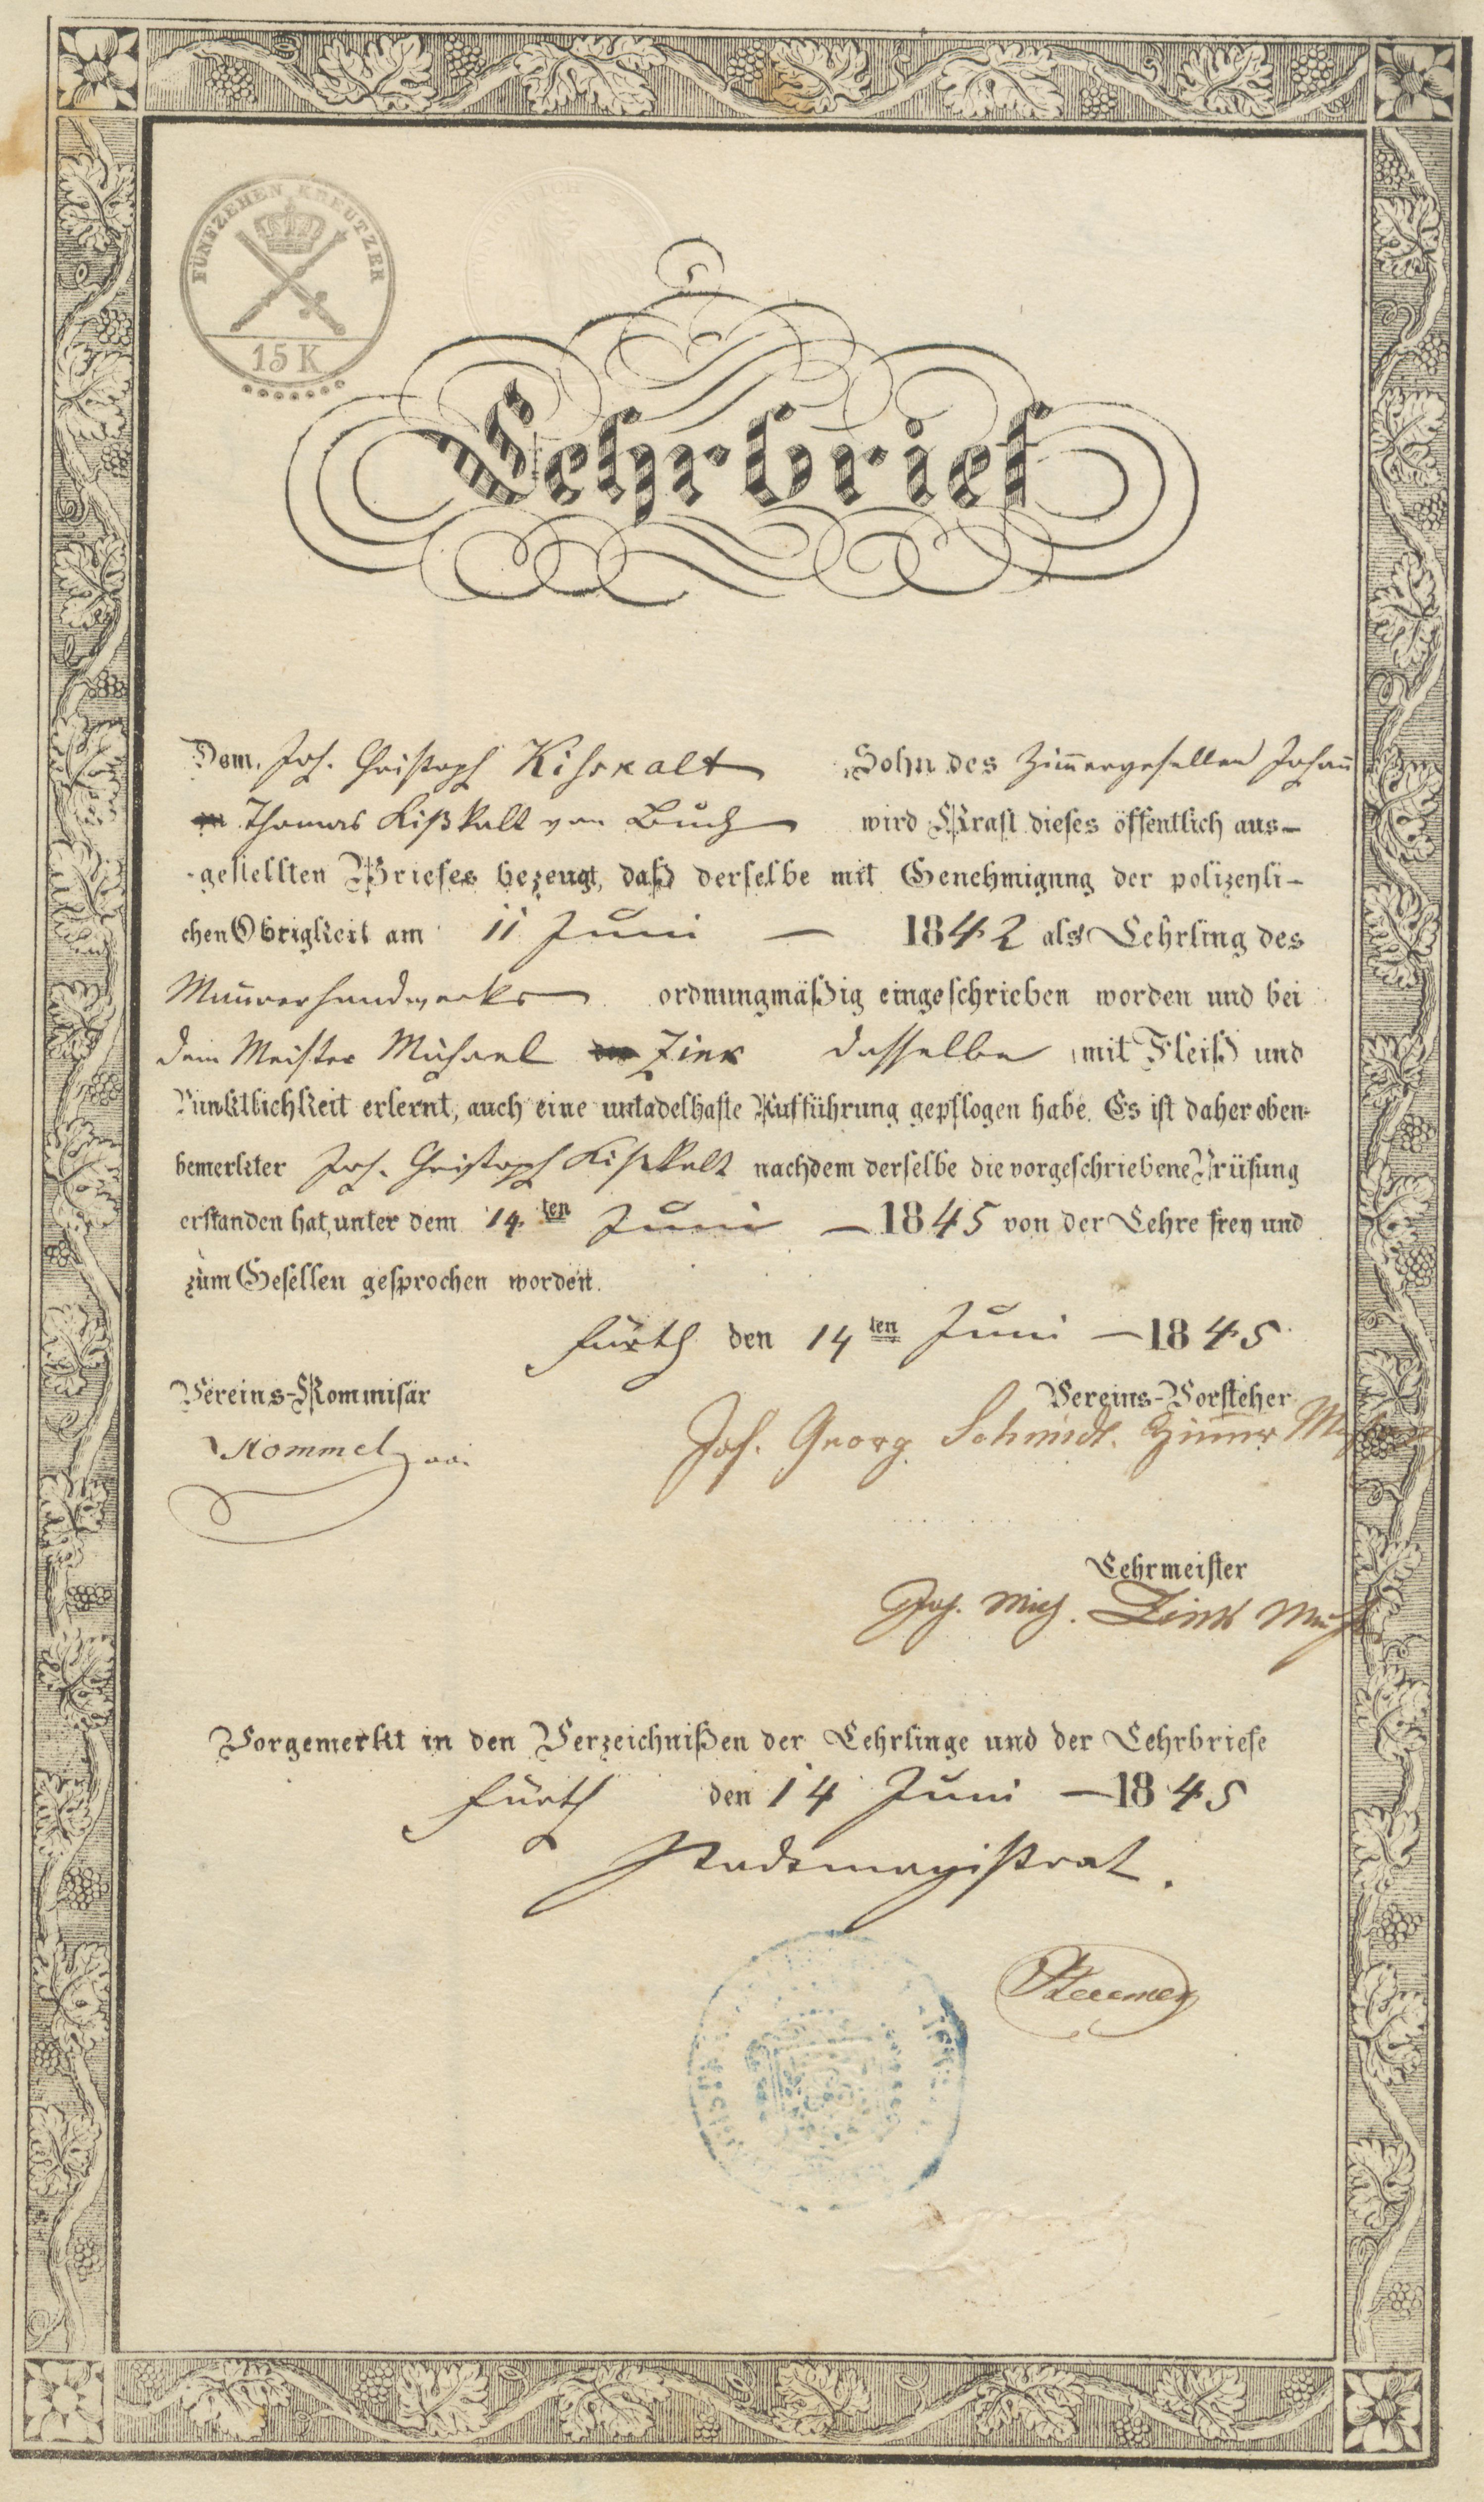 FÜNFZEHEN KREUTZER
15 K
Lehrbrief
Dem Joh. Christoph Kisskalt Sohn des Zimmergesellen Johann
Thomas Kißkalt von Buch wird Kraft dieses öffentlich aus-
gestellten Briefes bezeugt, daß derselbe mit Genehmigung der polizeyli-
chen Obrigkeit am 11 Juni — 1842 als Lehrling des
Maurerhandwerks ordnungmäßig eingeschrieben worden und bei
dem Meister Michael Zink dasselbe mit Fleiß und
Punktlichkeit erlernt, auch eine untadelhafte Aufführung gepflogen habe. Es ist daher oben-
bemerkter Joh. Christoph Kißkalt nachdem derselbe die vorgeschriebene Prüfung
erstanden hat, unter dem 14.ten Juni — 1845 von der Lehre frey und
zum Gesellen gesprochen worden.
Fürth den 14ten Juni — 1845
Vereins-Kommisär
Vereins-Vorsteher
Joh. Georg Schmidt. Zimmer
Lehrmeister
Joh. Mich. Zink
Vorgemerkt in den Verzeichnißen der Lehrlinge und der Lehrbriefe
Fürth den 14 Juni — 1845
Stadtmagistrat.